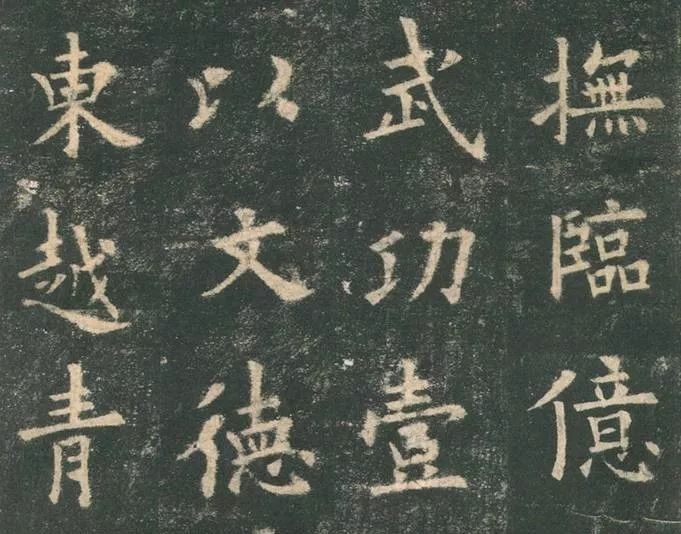 撫臨億
武功壹
以文德
東越青